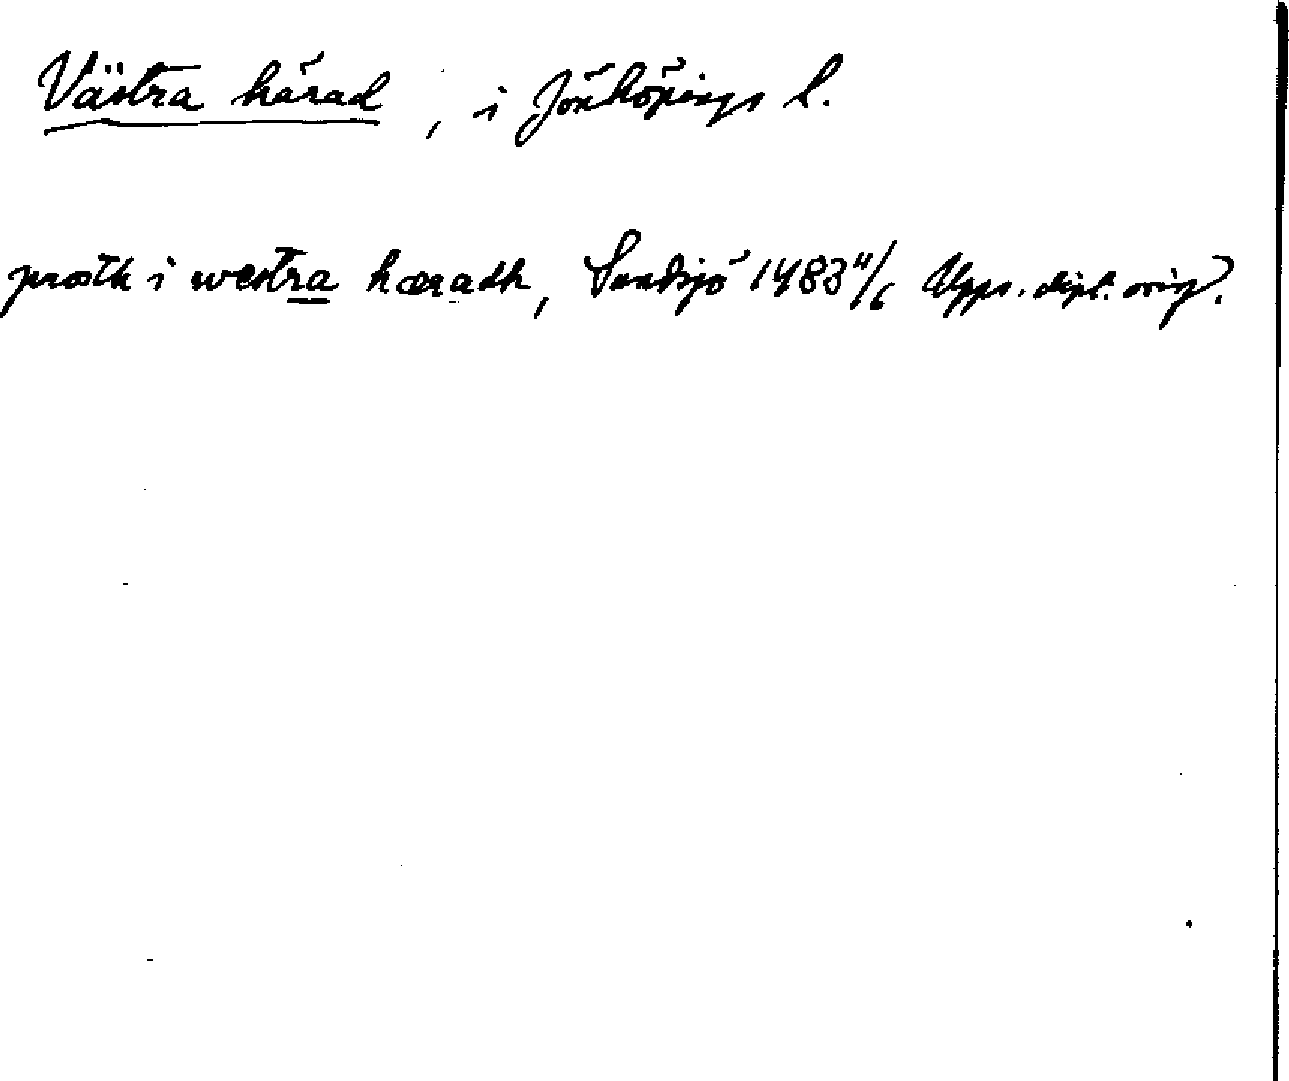 Västra härad, i Jönköpings l.
prosth i westra hæradh, Sandsjö 1483 4/6 Upps. dipl. orig.